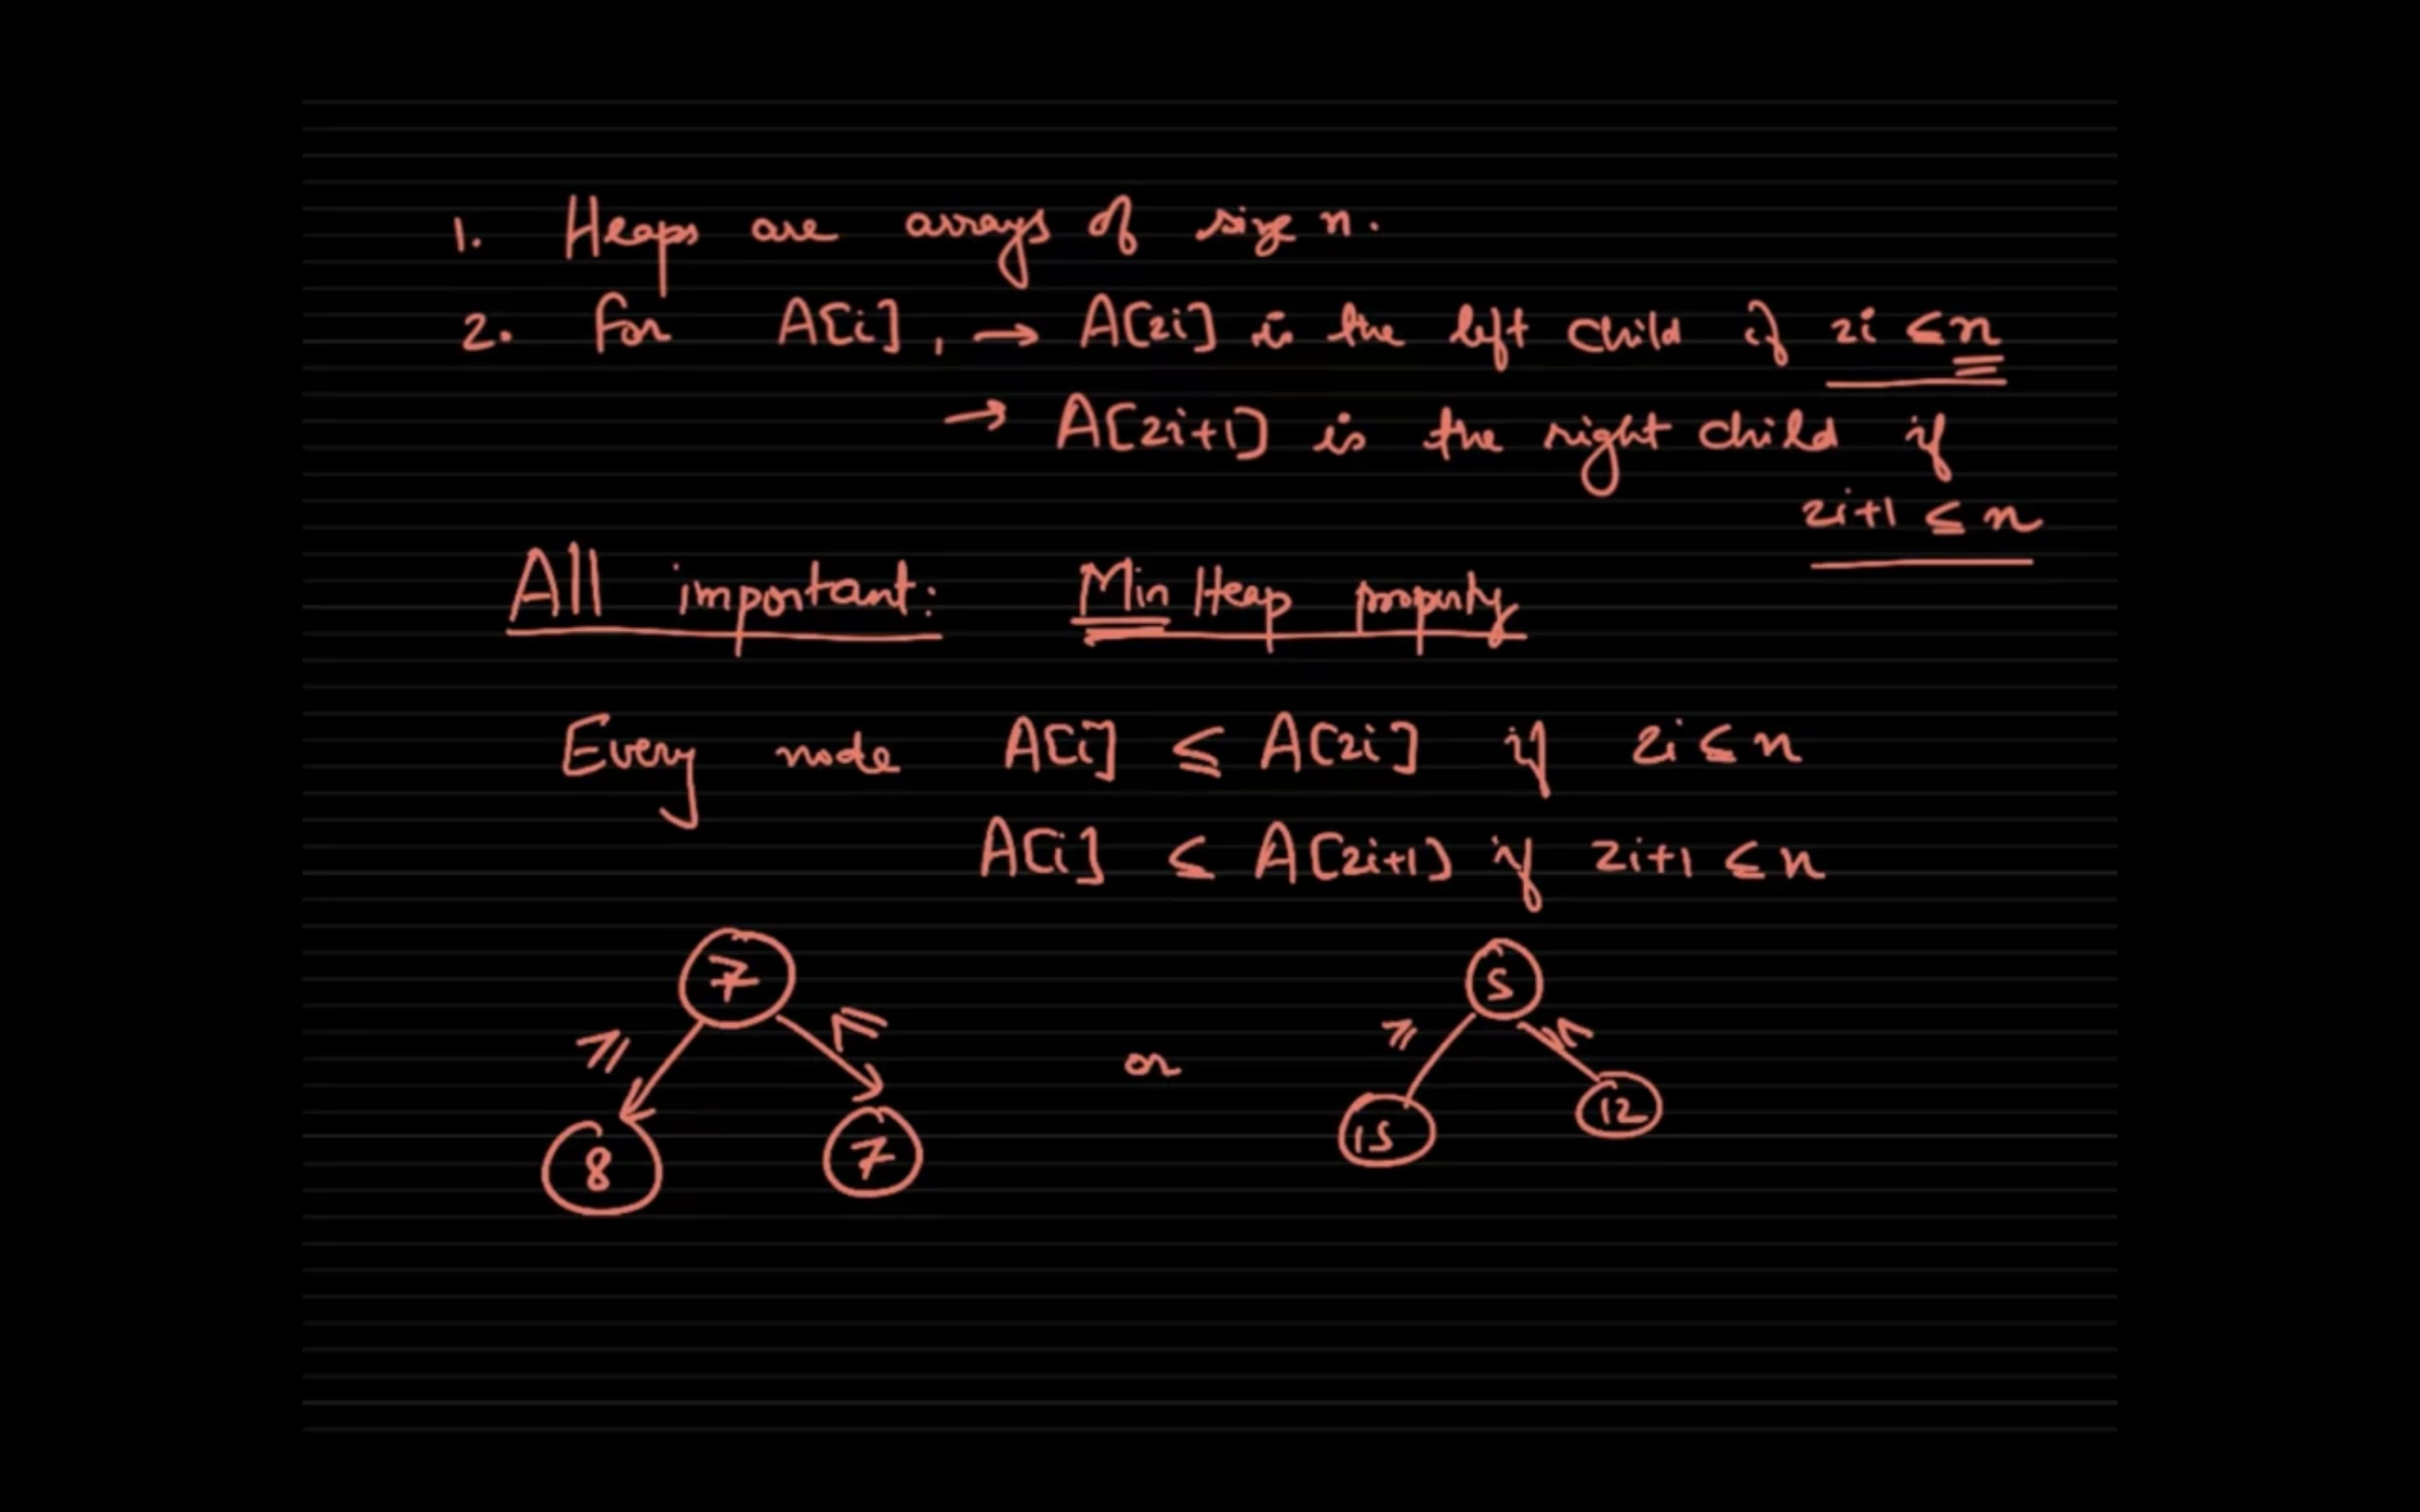 1. Heaps are arrays of size n.
2. for A[i], → A[2i] is the left child if 2i ≤ n
→ A[2i+1] is the right child if
2i+1 ≤ n
All important: Min Heap property
Every node A[i] ≤ A[2i] if 2i ≤ n
A[i] ≤ A[2i+1] if 2i+1 ≤ n
7 5
≥ ≤ or ≥ ≤
8 7 15 12